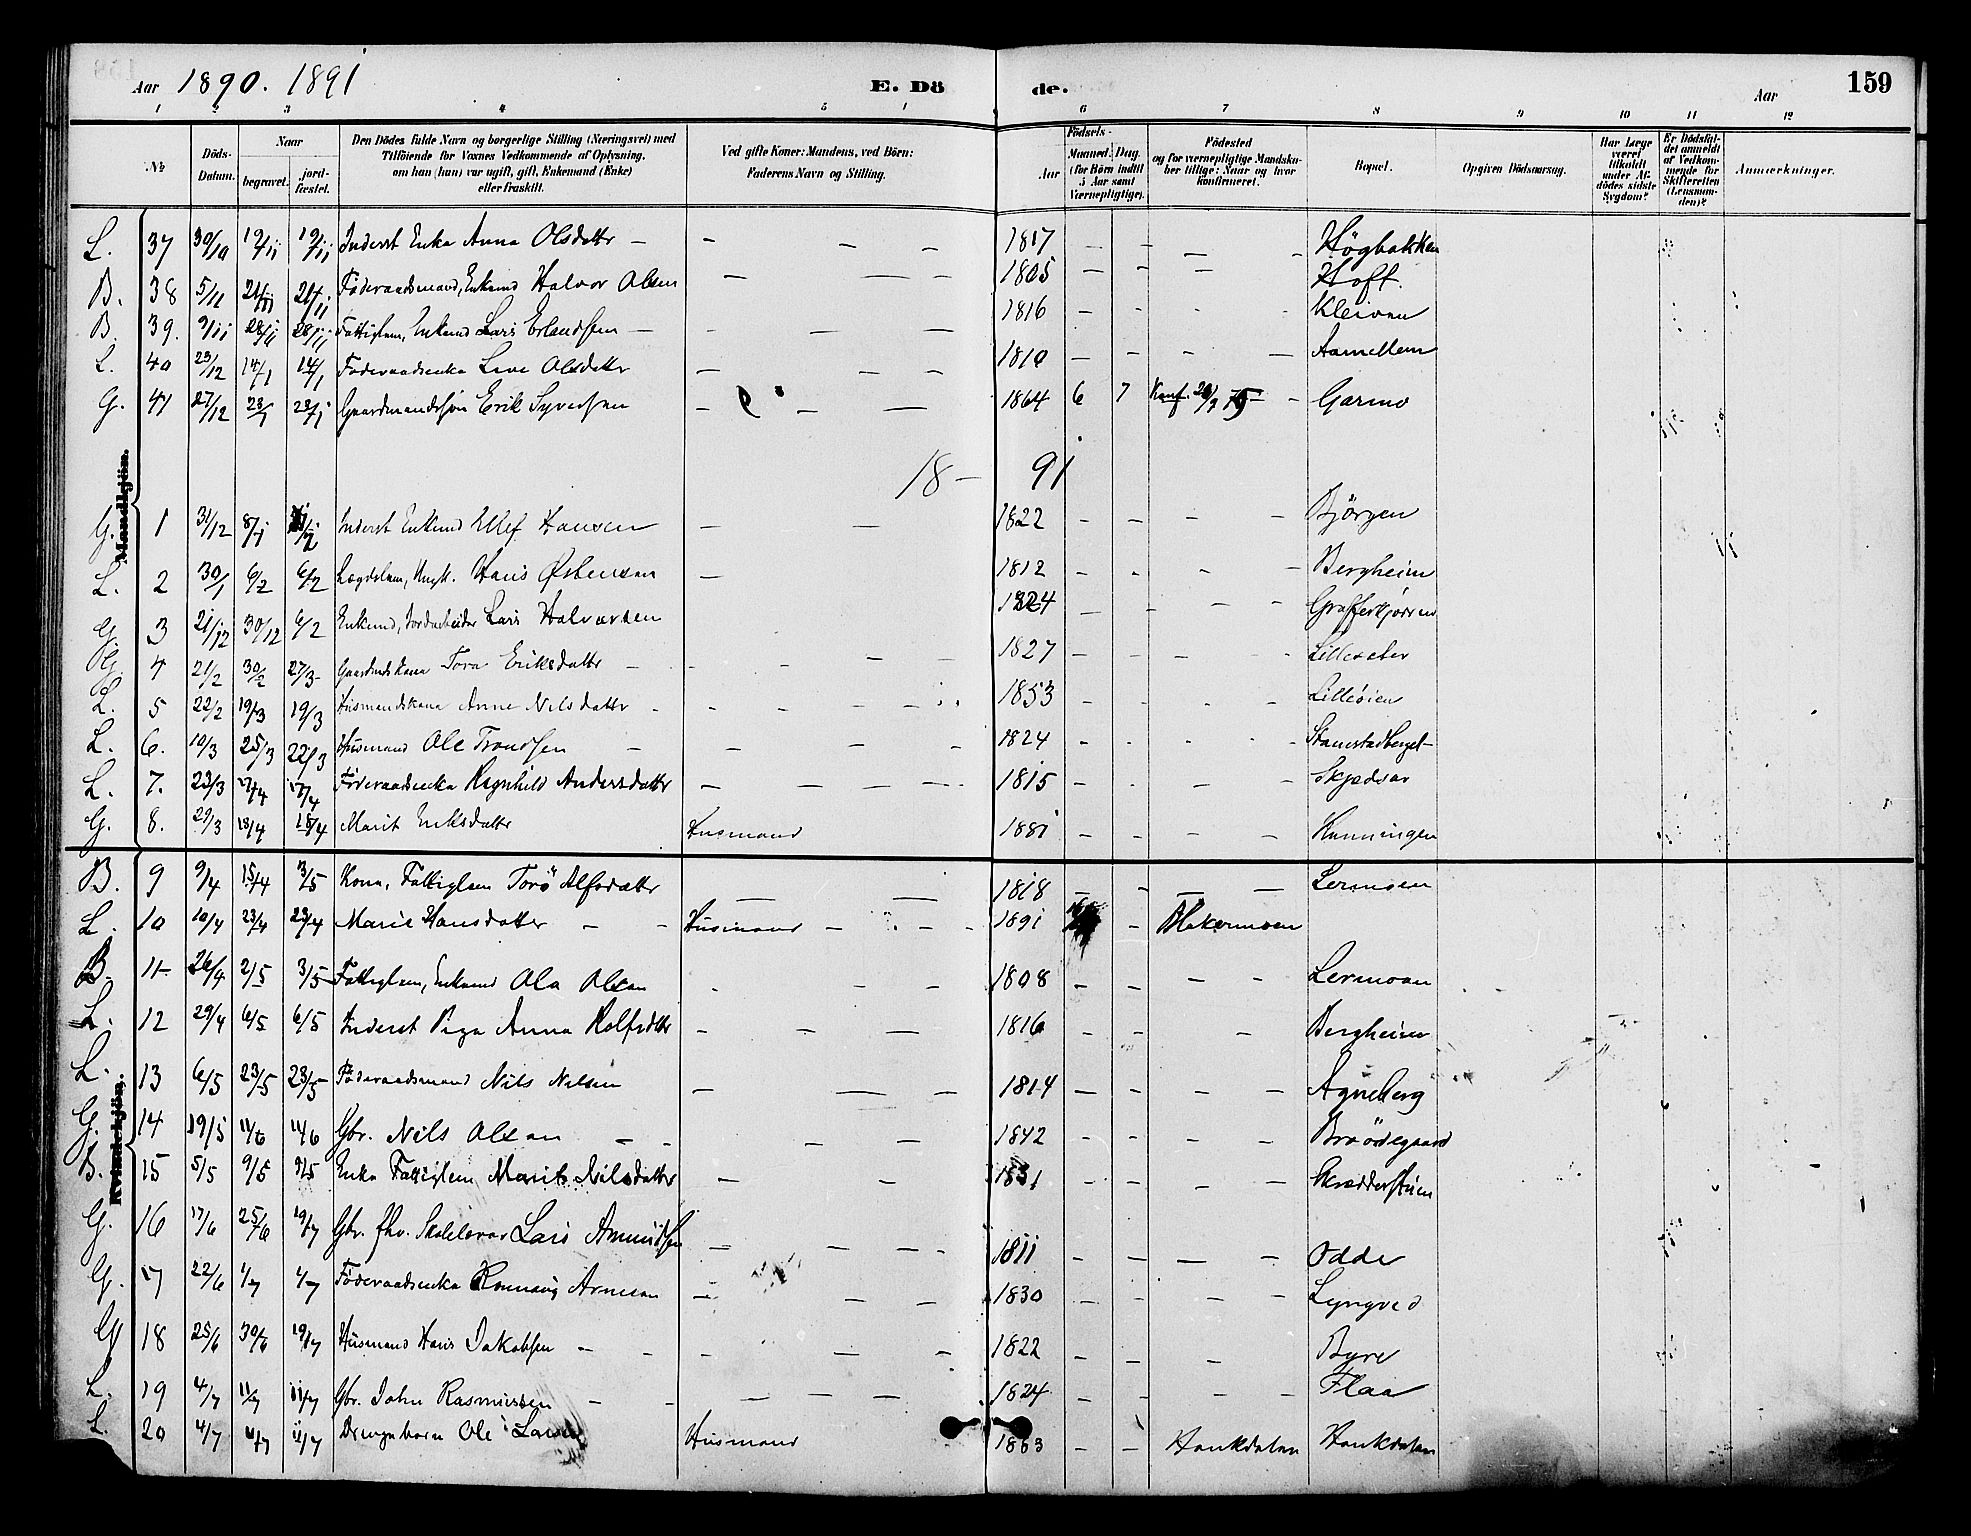 Aar 1890. 1891 E. Dö de. Aar 159
1 2 3 4 5 6 7 8 9 10 11 12
No Döds-Datum. Naar begravet. jordfæstet. Den Dödes fulde Navn og borgerlige Stilling (Næringsvei) med Tilföiende for Voxnes Vedkommende af Oplysning, om han (hun) var ugift, gift, Enkemand (Enke) eller fraskilt. Ved gifte Koner: Mandens, ved Börn: Faderens Navn og Stilling. Födsels- Aar Maaned. Dag. (for Börn indtil 5 Aar samt Værnepligtige). Födested og for værnepligtige Mandskaber tillige: Naar og hvor konfirmeret. Bopæl. Opgiven Dödsaarsag. Har Læge været tilkaldt under Afdödes sidste Sygdom? Er Dödsfaldet anmeldt af Vedkommende for Skifteretten (Lensmanden)? Anmærkninger.
L. 37 30/10 19/11 19/11 Inderst Enke Anna Olsdattr — 1817 Högbakken
B. 38 5/11 21/11 21/11 Föderaadsmand, Enkemd Halvor Olsen 1805 Hoft.
B. 39. 9/11 28/11 28/11 Fattiglem, Enkemd Lars Erlandsen 1816 Kleiven
L. 40 23/12 14/1 14/1 Föderaadsenke Live Olsdattr 1810 Aamellem
G. 41 27/12 23/1 23/1 Gaardmandssön Erik Syversen 1864 6 7 Konf. Garmo
Mandkjön.
18 — 91
G. 1 31/12 8/1 Inderst Enkemd Ellef Hansen 1822 Björgen
L. 2 30/1 6/2 6/2 Lægdslem, Ungk. Hans Østensen 1812 Bergheim
G. 3 21/12 30/12 6/2 Enkemd, Jordarbeider Lars Halvorsen 1824
G. 4 21/2 30/2 27/3 Gaardmdskone Tora Eriksdattr 1827 Lilleseter
L. 5 22/2 19/3 19/3 Husmandskone Anne Nilsdattr 1853 Lilleöien
L. 6. 10/3 25/3 22/3 Husmand Ole Trondsen 1824 Stamstadberget
L. 7. 23/3 17/4 17/4 Föderaadsenke Ragnhild Andersdattr 1815 Skjedsar
G. 8. 29/3 18/4 18/4 Marit Eriksdattr Husmand 1881 Hunningen
B. 9 9/4 15/4 3/5 Kone, Fattiglem Torö Alfsdattr 1818 Lermoen
L. 10 10/4 23/4 23/4 Marie Hansdatter Husmand 1891 Blakermoen
B. 11 26/4 2/5 3/5 Fattiglem, Enkemd Ole Olsen 1808 Lermoen
L. 12 29/4 6/5 6/5 Inderst Pige Anna Rolfsdttr 1816 Bergheim
L. 13 6/5 23/5 23/5 Föderaadsmand Nils Nilsen 1814 Agneberg
G. 14 19/5 11/6 11/6 Gbr. Nils Olsen 1842 Bröödegaard
B. 15 5/5 9/5 9/5 Enke Fattiglem Marit Nilsdatter 1831 Skrædderstuen
Kvindekjön.
G. 16 17/6 25/6 19/7 Gbr. fhv. Skolelærer Lars Amundsen 1811 Odde
G. 17 22/6 4/7 4/7 Föderaadsenke Rönnaug Arnesen 1830 Lyngved
G 18 25/6 30/6 19/7 Husmand Hans Jakobsen 1822 Byre
L. 19 4/7 11/7 11/7 Gbr. John Rasmussen 1824 Flaa
L. 20 4/7 11/7 11/7 Ole Larsen Husmand 1863 Haukdalen Haukdalen